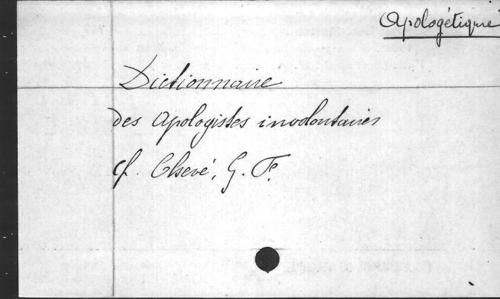 Apologétique
Dictionnaire
des Apologistes involontaires
cf. Chevé, G. F.